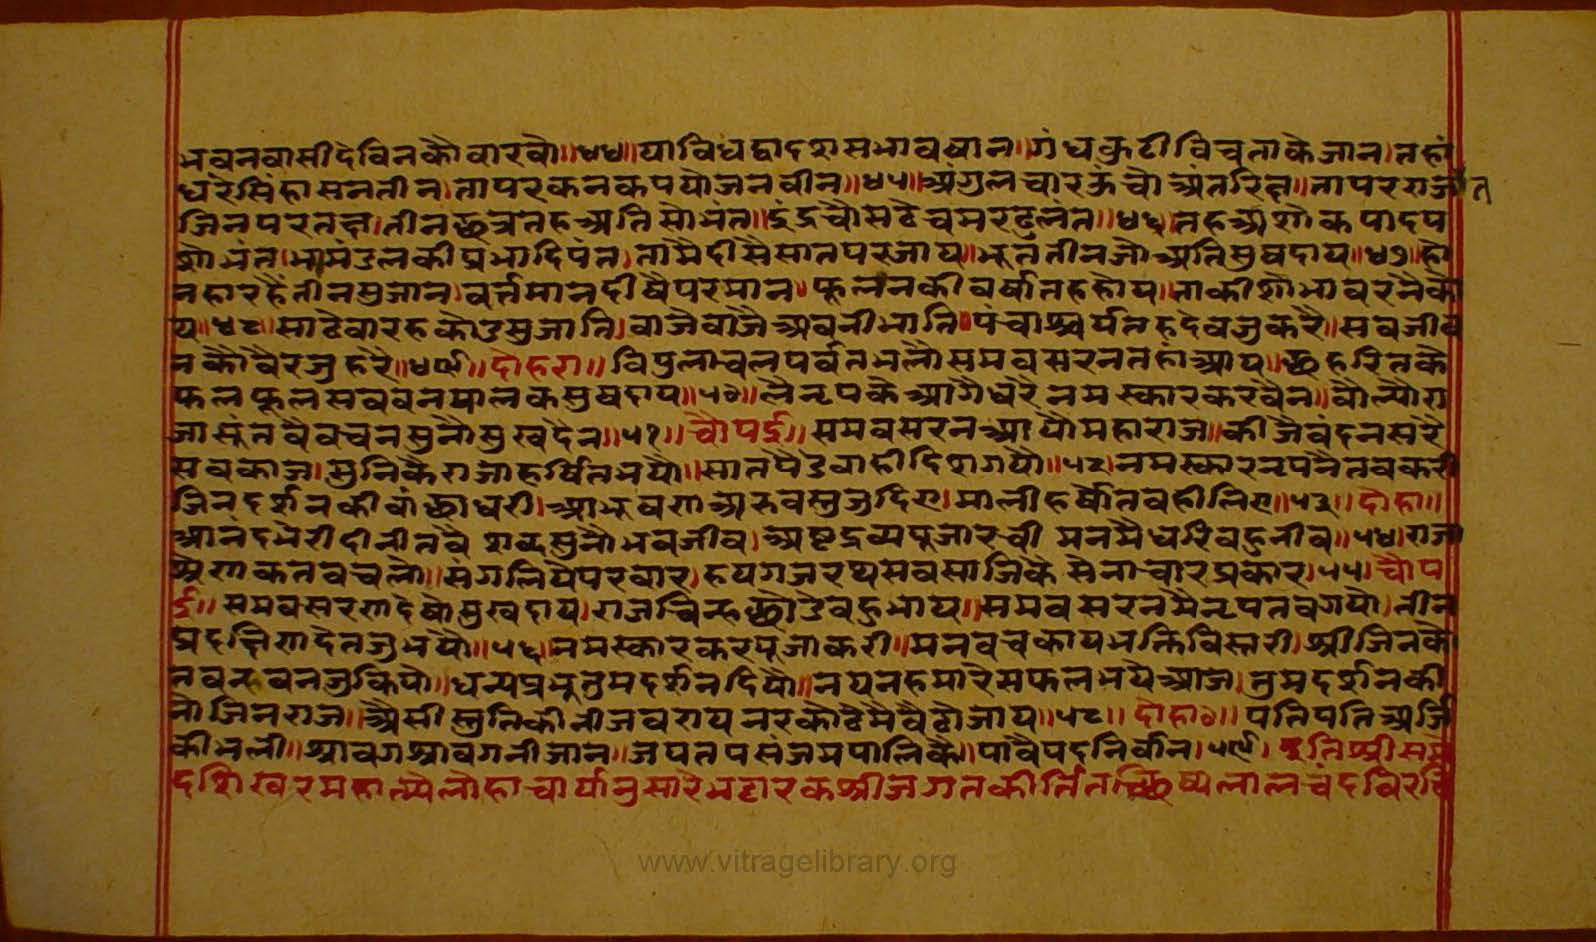 भवनवासीदेविनकौवारवो॥४४॥याविधद्वादशसभावषान।गंधकुटीविचताकेजान।तहां
धरेसिंहासनतीन।तापरकनकपयोजनवीन॥४५॥अंगुलचारऊंचोअंतरिक्ष॥तापरराजत
जिनपरतक्ष।तीनछत्रतहअतिसोभंत॥इंद्रचौसठिचमरढुलंत॥४६।तहअशोकपादप
शोभंत।भामंडलकीप्रभादिपंत।तामैदीसैसातपरजाय॥भूतंतीनजोअतिसुषदाय॥४७॥हो
नहारहैंतीनसुजान।वर्त्तमानदीषैपरमान॥फूलनकीवर्षातहहोय।ताकीशोभावरनैको
य॥४८॥साढेवारहकोडसुजाति।वाजैवाजैअवनीभाति॥पंचाश्चर्यतहदेवजुकरै॥सवजीव
नकौवैरजुहरै॥४९॥दोहरा॥विपुलाचलपर्वतभलौसमवसरनतहांआय॥छहरितकै
फलफूलसववनमालकसुषदाय॥५०॥लैनृपकैआगैधरैनमस्कारकरवैन॥वौल्यौरा
जासूंतवैवचनसुनौसुखदेन॥५१॥चौपई॥समवसरनआयौमहाराज॥कीजैवंदनसरै
सवकाज।सुनिकैराजाहर्षितभयौ॥सातपैडवाहीदिशगयौ॥५२।नमस्कारनृपनैतवकरी
जिनदर्शनकीवांछाधरी।आभूषणअरुवस्तुजुदिए।मालीहर्षोतवहीलिए॥५३॥दोहा॥
आनंदभेरीदीनीतवैशब्दसुनौभवजीव।अष्टद्रव्यपूजारचीमनमैधरिवहुनीव॥५४॥राजा
श्रेणकतवचलो॥संगलियैपरवार।हयगजरथसवसाजिकैसेनाचारप्रकार।५५।चौप
ई॥समवसरणदेषोसुखदाय।राजचिन्हछोडेवहुभाय॥समवसरनमैनृपतवगयो।तीन
प्रदक्षिणादेतजुभयौ॥५६॥नमस्कारकरपूजाकरी॥मनवचकायभक्तिविस्तरी।श्रीजिनकौ
तवन्हवनजुकियो॥धन्यप्रभूतुमदर्शनदियौ॥नयनहमारेसफलभयैआज।तुमदर्शनकी
नोजिनराज॥अैसीस्तुतिकीनीजवरायनरकोठैमैवैठोजाय॥५८॥दोहा०॥पतिपतिअर्जि
कीभली॥श्रावगश्रावगनीजान॥जपतपसंजमपालिकै॥पांवैपदनिर्वान।५९।इतिश्रीसमे
दशिखरमहात्म्यैलोहाचार्यानुसारेभट्टारकश्रीजगतकीर्तितत्छिष्यलालचंदविरचि
www.vitragelibrary.org